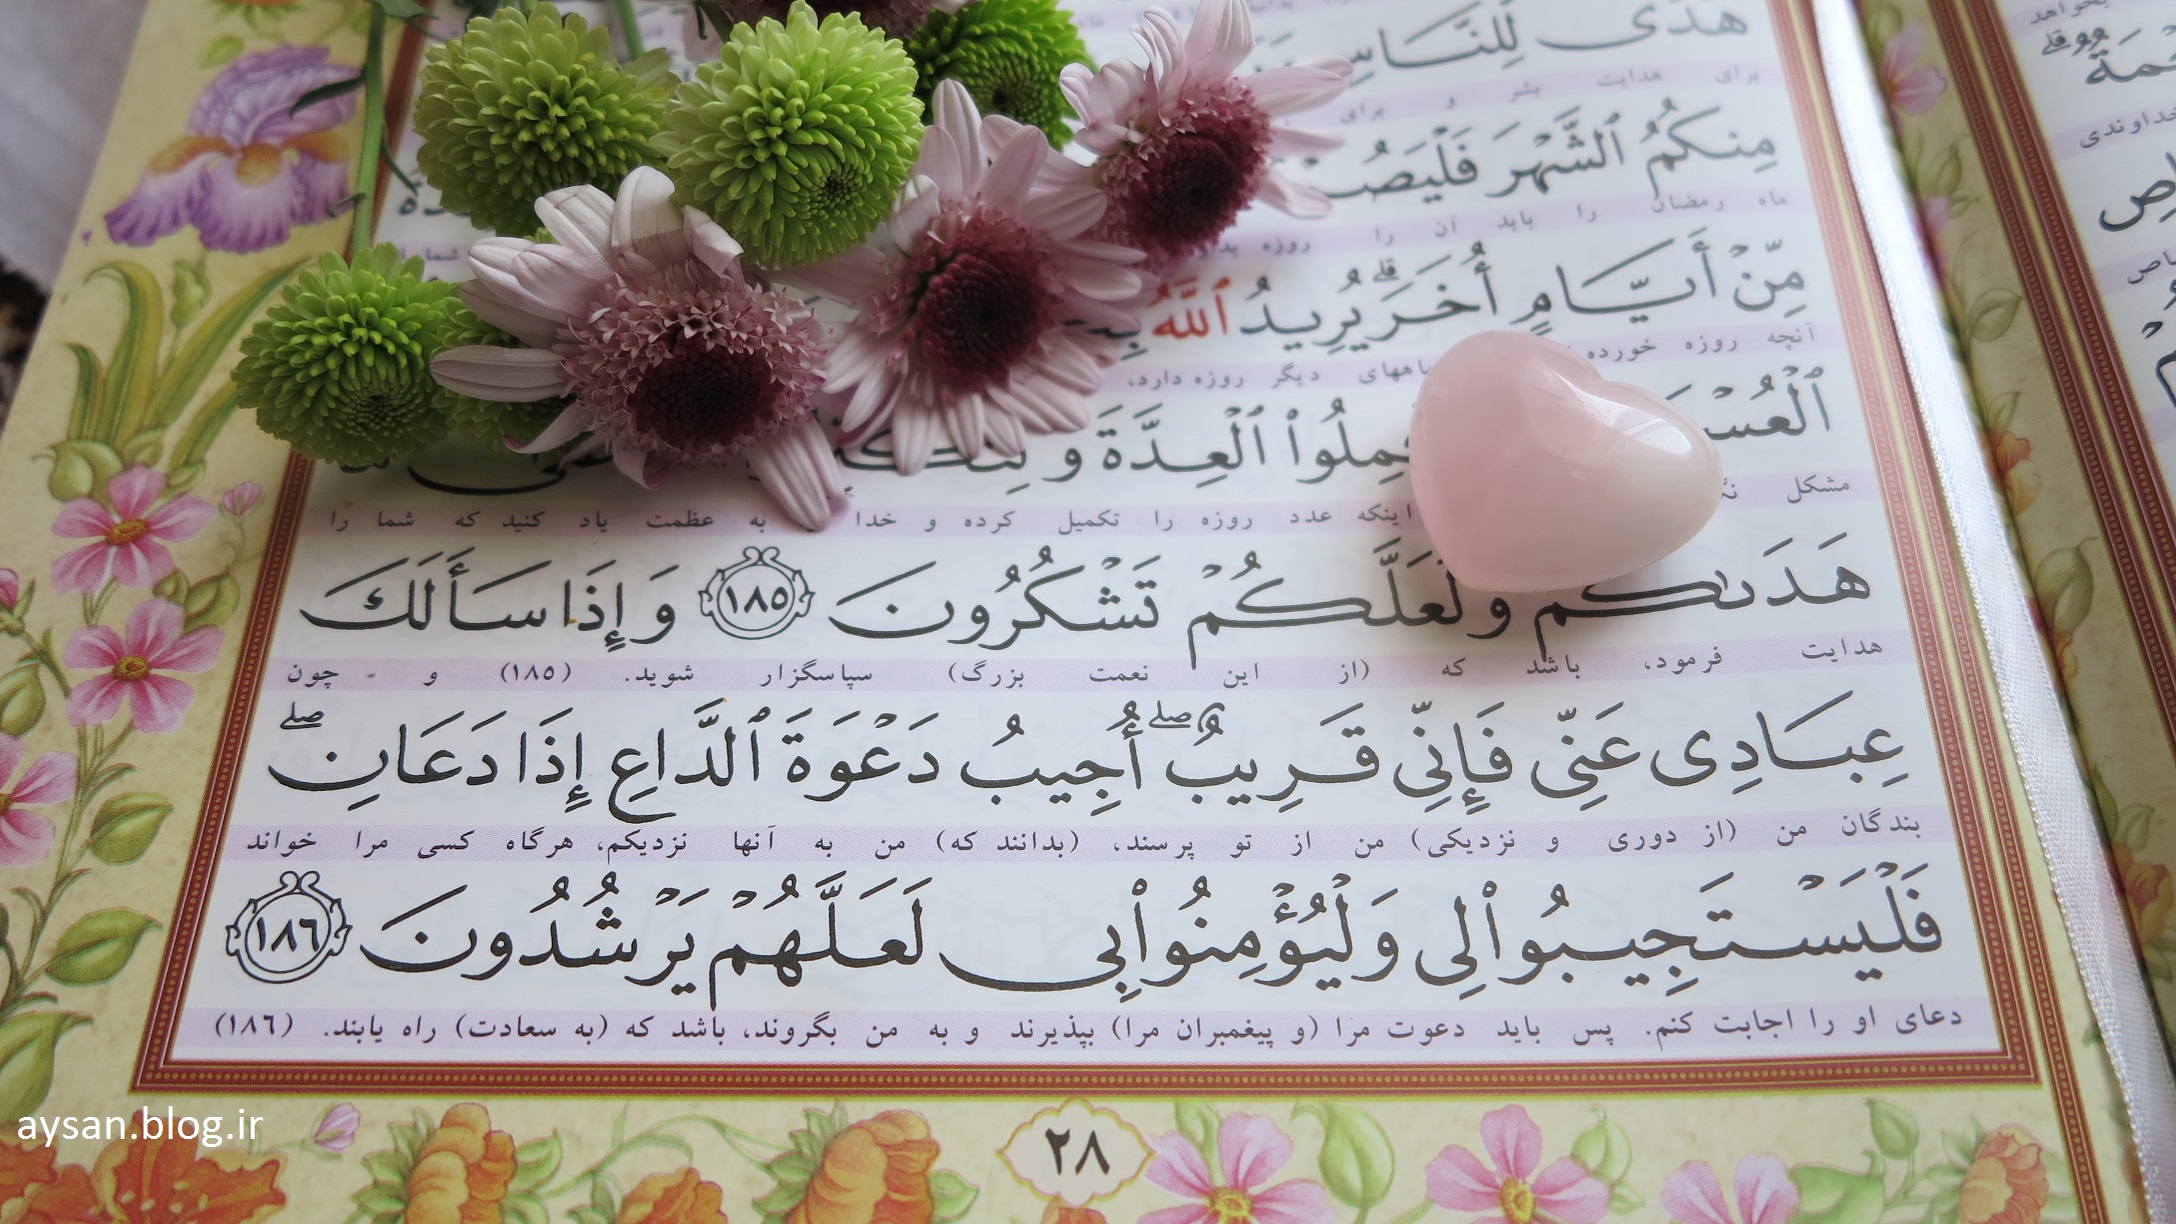 هُدًى لِّلنَّاسِ
برای هدایت بشر و برای
مِنكُمُ ٱلشَّهْرَ
ماه رمضان را باید آن را روزه
مِّنْ أَيَّامٍ أُخَرَ ۗ يُرِيدُ ٱللَّهُ
آنچه روزه خورده
دیگر روزه دارد،
ٱلْعِدَّةَ
مشکل
اینکه عدد روزه را تکمیل کرده و خدا به عظمت یاد کنید که شما را
هَدَىٰكُمْ وَلَعَلَّكُمْ تَشْكُرُونَ ١٨٥ وَإِذَا سَأَلَكَ
هدایت فرمود، باشد که (از این نعمت بزرگ) سپاسگزار شوید. (١٨٥) و چون
عِبَادِى عَنِّى فَإِنِّى قَرِيبٌ ۖ أُجِيبُ دَعْوَةَ ٱلدَّاعِ إِذَا دَعَانِ ۖ
بندگان من (از دوری و نزدیکی) من از تو پرسند، (بدانند که) من به آنها نزدیکم، هرگاه کسی مرا خواند
فَلْيَسْتَجِيبُوا۟ لِى وَلْيُؤْمِنُوا۟ بِى لَعَلَّهُمْ يَرْشُدُونَ ١٨٦
دعای او را اجابت کنم. پس باید دعوت مرا (و پیغمبران مرا) بپذیرند و به من بگروند، باشد که (به سعادت) راه یابند. (١٨٦)
٢٨
aysan.blog.ir